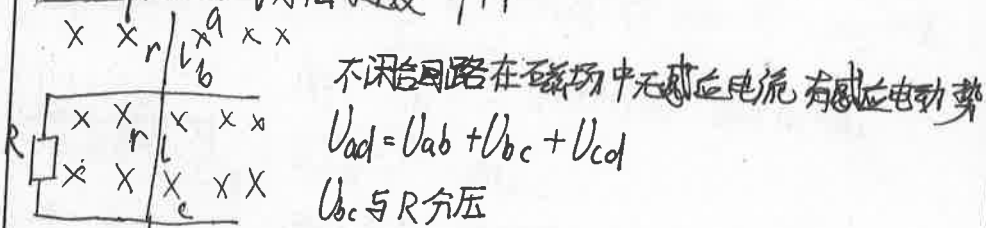 × × r l × a × ×
b
不闭合回路在磁场中无感应电流 有感应电动势
R × × r l × × ×
Uad = Uab + Ubc + Ucd
× × × × ×
c
Ubc与R分压